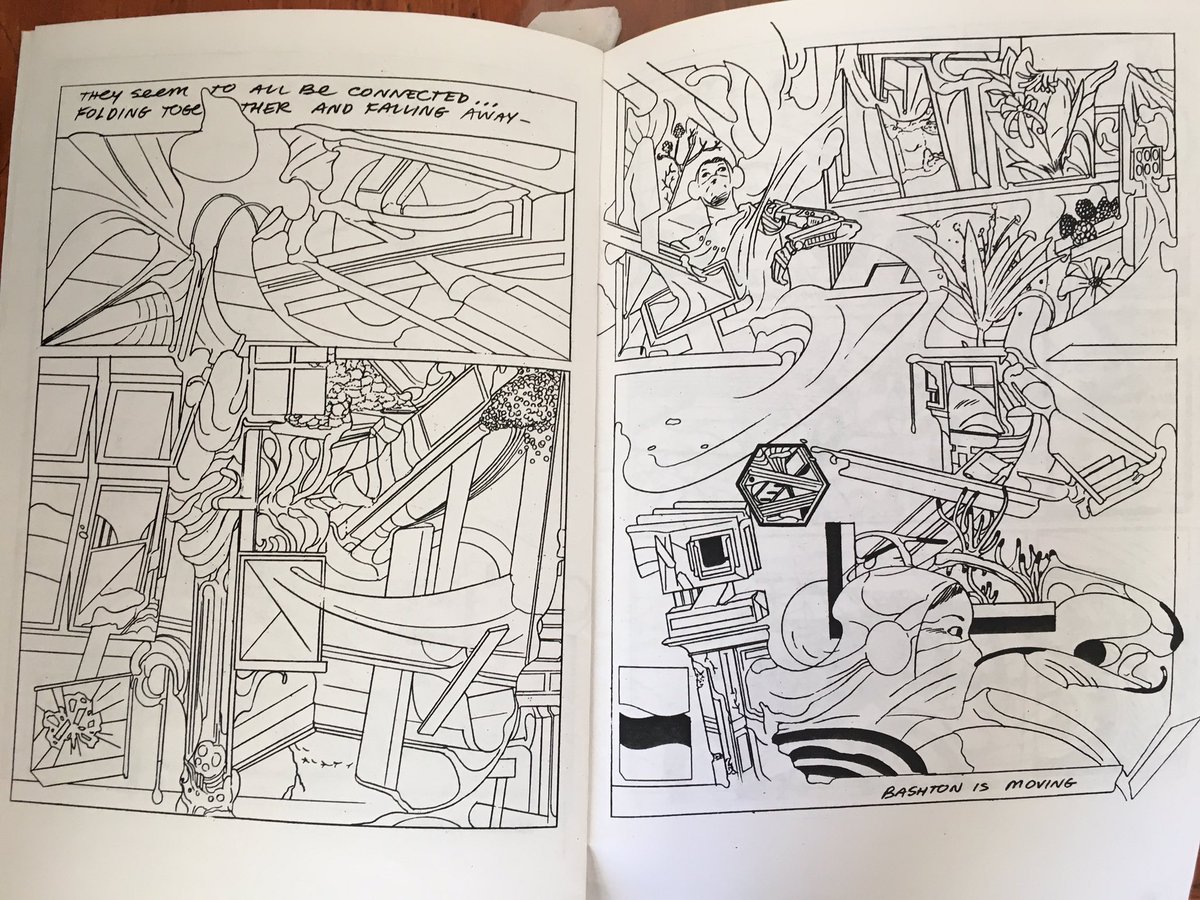 THEY SEEM TO ALL BE CONNECTED...
FOLDING TOGETHER AND FALLING AWAY—
BASHTON IS MOVING